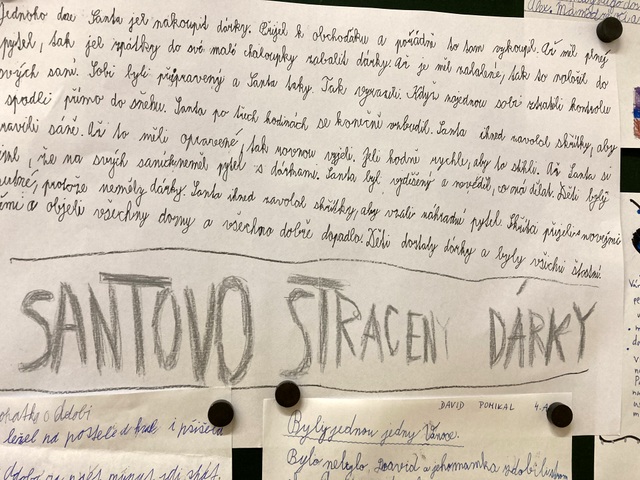 Jednoho dne Santa jel nakoupit dárky. Přijel k obchodáku a pořádně to tam vykoupil. Až měl plný
pytel, tak jel zpátky do své malé chaloupky zabalit dárky. Až je měl nabalené, tak to naložil do
svých saní. Sobi byli připravený a Santa taky. Tak vyrazili. Když najednou sobi ztratili kontrolu
spadli přímo do sněhu. Santa po třech hodinách se konečně vzbudil. Santa ihned zavolal skřítky, aby
pravili sáně. Až to měli opravené, tak rovnou vyjeli. Jeli hodně rychle, aby to stihli. Až Santa si
, že na svých saních neměl pytel s dárkami. Santa byl vyděšený a nevěděl, co má dělat. Děti byly
, protože neměly dárky. Santa ihned zavolal skřítky, aby vzali náhradní pytel. přijeli s novými
a objeli všechny domy a všechno dobře dopadlo. Děti dostaly dárky a byly všichni šťastní
SANTOVO STRACENY DÁRKY
DAVID POMIKAL 4.A
o Ddobi
ležel na posteli a i
Byly jednou jedny Vánoce.
Bylo nebylo, David a jeho mamka zdobili